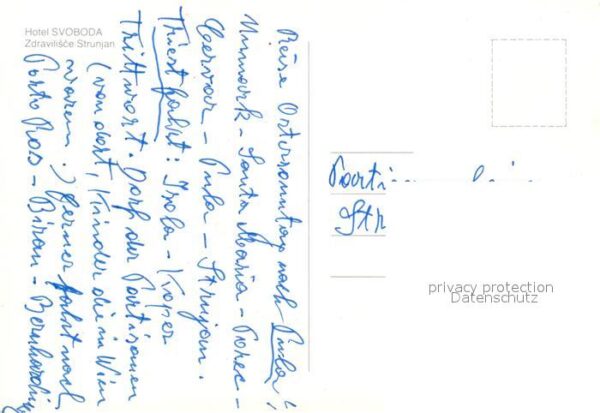 Hotel SVOBODA
Zdravilišče Strunjan
Reise Ostersonntag nach Pula!
Santa Maria - Porec -
Cervar - Pula - Strujan.
Triest fahrt: Isola - Koper
Dorf der Partisanen
(von dort, Kinder die in Wien
waren.) Ferner fahrt nach
Porto Ros - Biran - Bernhardin
Str
privacy protection
Datenschutz